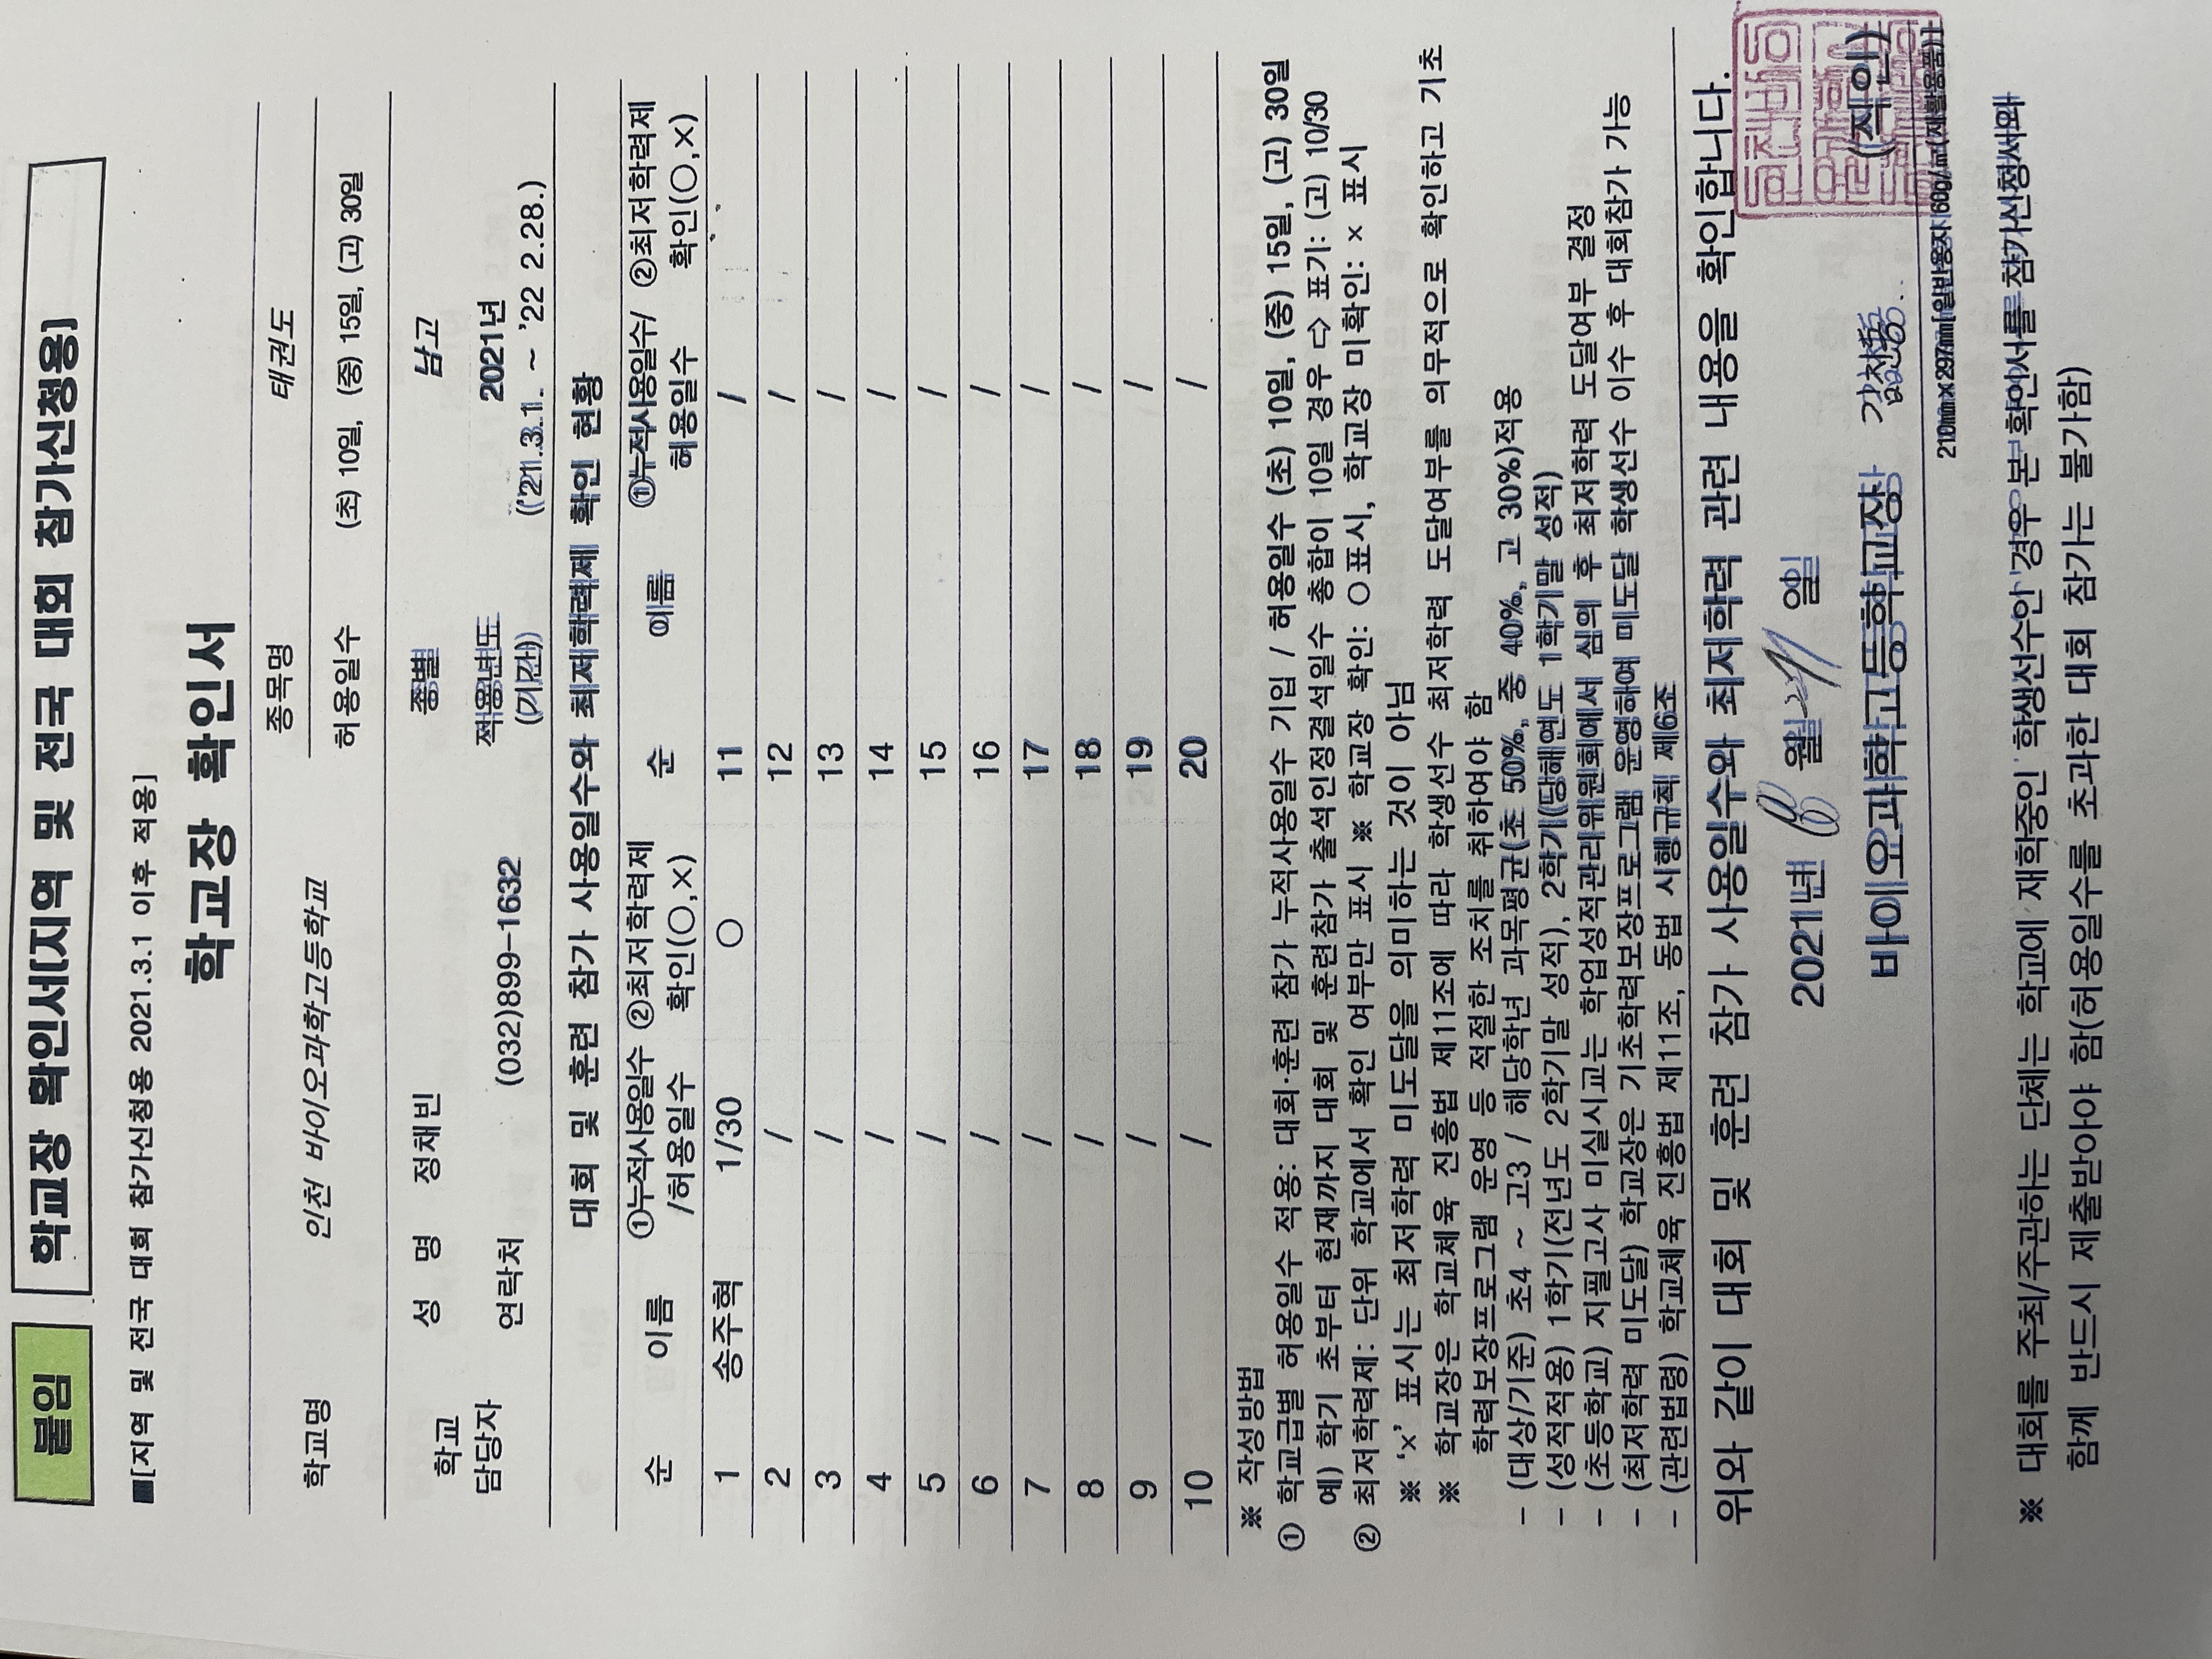 붙임
학교장 확인서[지역 및 전국 대회 참가신청용]
■[지역 및 전국 대회 참가신청용 2021.3.1 이후 적용]
학교장 확인서
학교명 인천 바이오과학고등학교 종목명 태권도
허용일수 (초) 10일, (중) 15일, (고) 30일
학교 담당자 성 명 정채빈 종별 남고
연락처 (032)899-1632 적용년도 (기간) 2021년 ('21.3.1. ~ '22 2.28.)
대회 및 훈련 참가 사용일수와 최저학력제 확인 현황
순 이름 ①누적사용일수/허용일수 ②최저학력제 확인(○,×) 순 이름 ①누적사용일수/허용일수 ②최저학력제 확인(○,×)
1 송주혁 1/30 ○ 11 /
2 / 12 /
3 / 13 /
4 / 14 /
5 / 15 /
6 / 16 /
7 / 17 /
8 / 18 /
9 / 19 /
10 / 20 /
※ 작성방법
① 학교급별 허용일수 적용: 대회·훈련 참가 누적사용일수 기입 / 허용일수 (초) 10일, (중) 15일, (고) 30일
예) 학기 초부터 현재까지 대회 및 훈련참가 출석인정결석일수 총합이 10일 경우 ⇨ 표기: (고) 10/30
② 최저학력제: 단위 학교에서 확인 여부만 표시 ※ 학교장 확인: ○표시, 학교장 미확인: × 표시
※ '×' 표시는 최저학력 미도달을 의미하는 것이 아님
※ 학교장은 학교체육 진흥법 제11조에 따라 학생선수 최저학력 도달여부를 의무적으로 확인하고 기초
학력보장프로그램 운영 등 적절한 조치를 취하여야 함
- (대상/기준) 초4 ~ 고3 / 해당학년 과목평균(초 50%, 중 40%, 고 30%)적용
- (성적적용) 1학기(전년도 2학기말 성적), 2학기(당해연도 1학기말 성적)
- (초등학교) 지필고사 미실시교는 학업성적관리위원회에서 심의 후 최저학력 도달여부 결정
- (최저학력 미도달) 학교장은 기초학력보장프로그램 운영하여 미도달 학생선수 이수 후 대회참가 가능
- (관련법령) 학교체육 진흥법 제11조, 동법 시행규칙 제6조
위와 같이 대회 및 훈련 참가 사용일수와 최저학력 관련 내용을 확인합니다.
2021년 월 일
바이오과학고등학교장 (직인)
210mm×297mm[일반용지 60g/㎡(재활용품)]
※ 대회를 주최/주관하는 단체는 학교에 재학중인 학생선수인 경우 본 확인서를 참가신청서와
함께 반드시 제출받아야 함(허용일수를 초과한 대회 참가는 불가함)